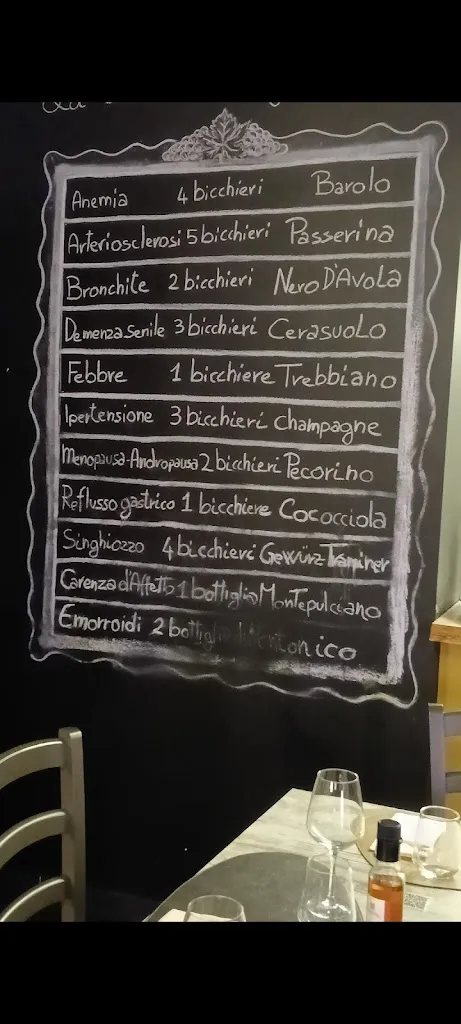 Anemia 4 bicchieri Barolo
Arteriosclerosi 5 bicchieri Passerina
Bronchite 2 bicchieri Nero D'Avola
Demenza Senile 3 bicchieri Cerasuolo
Febbre 1 bicchiere Trebbiano
Ipertensione 3 bicchieri Champagne
Menopausa-Andropausa 2 bicchieri Pecorino
Reflusso gastrico 1 bicchiere Cococciola
Singhiozzo 4 bicchieri Gewürz-Traminer
Carenza d'Affetto 1 bottiglia Montepulciano
Emorroidi 2 bottiglie